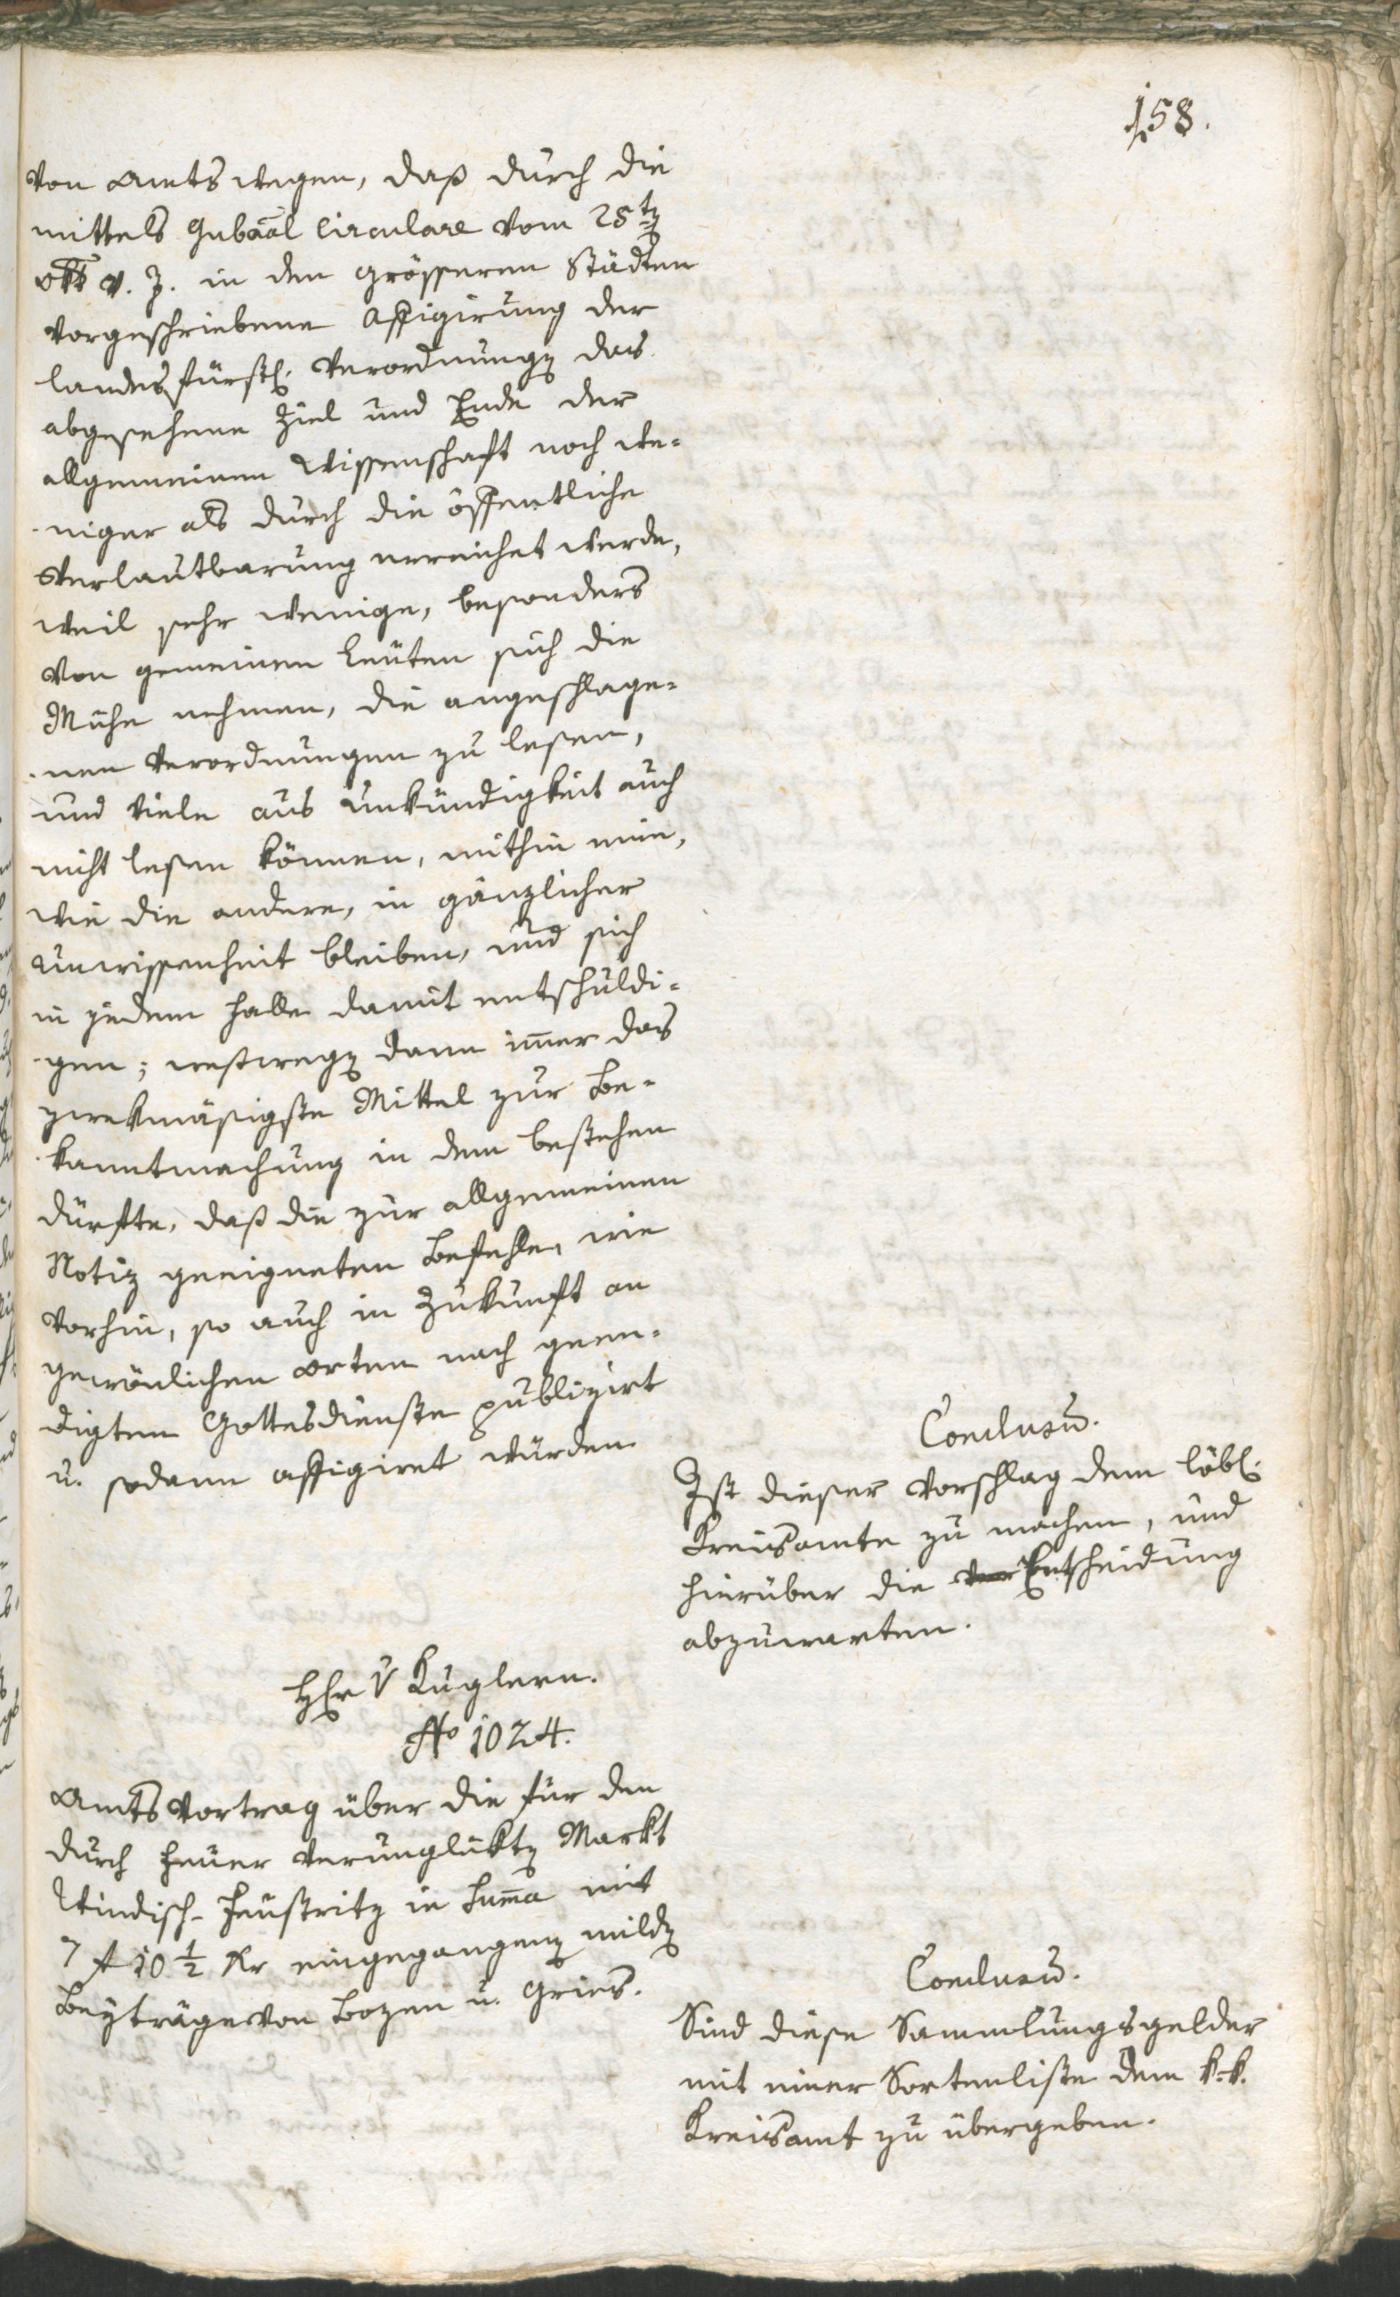 158.
von Amts wegen, daß durch die
mittels Gubaal Circulare vom 28ten
8br v. J. in den grösseren Städten
vorgeschriebene Affigirung der
landesfürstl. Verordnungen das
abgesehene Ziel und Ende der
allgemeinen Wissenschaft noch we-
niger als durch die öffentliche
Verlautbarung erreichet werde,
weil sehr wenige, besonders
von gemeinen Leuten sich die
Mühe nehmen, die angeschlage-
nen Verordnungen zu lesen,
und viele aus Unkündigkeit auch
nicht lesen können, mithin eine,
wie die andere, in gänzlicher
Unwissenheit bleiben, und sich
in jedem Falle damit entschuldi-
gen; weßwegen dann imer das
zwekmäsigste Mittel zur Be-
kanntmachung in dem bestehen
dürfte, daß die zur allgemeinen
Notiz geeigneten Befehle, wie
vorhin, so auch in Zukunft an
gewönlichen Orten nach geen-
digtem Gottesdienste publizirt
u. sodann affigiret würden.
Conclusum.
Ist dieser Vorschlag dem löbl.
Kreisamte zu machen, und
hierüber die Entscheidung
abzuwarten.
Hr v Kuglern.
No 1024.
Amtsvortrag über die für den
durch Feuer verunglükten Markt
Windisch-Feustritz in Suma mit
7 f 10 1/2 kr eingegangenen milden
Beyträge von Bozen u. Gries.
Conclusum.
Sind diese Sammlungsgelder
mit einer Sortenliste dem k.k.
Kreisamt zu übergeben.